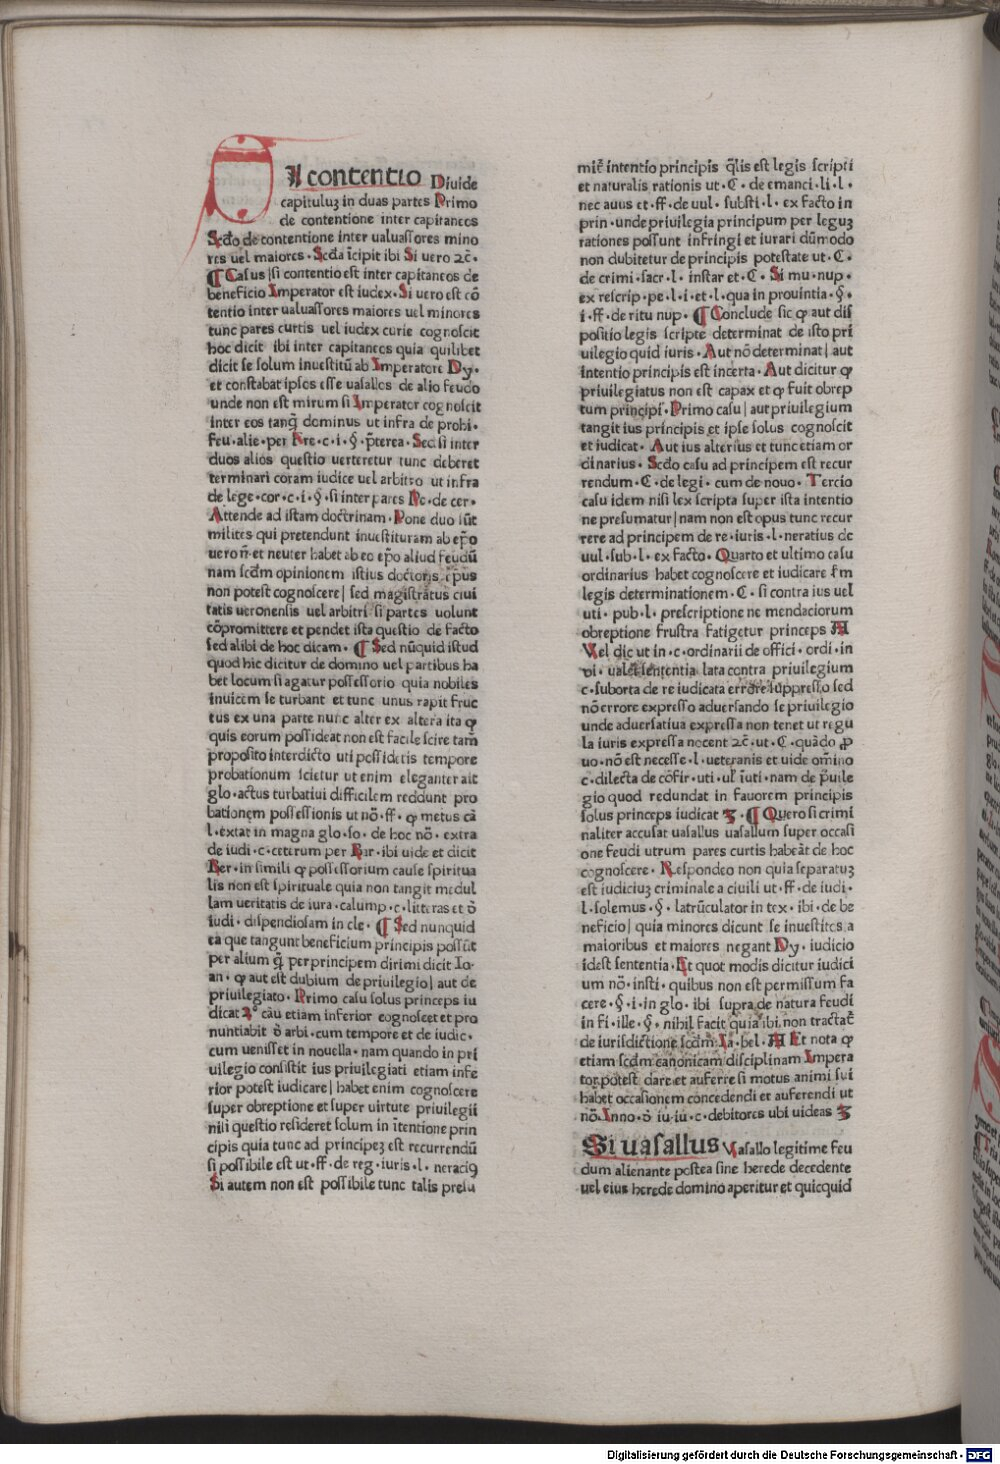 Si contentio Diuide
capituluʒ in duas partes Primo
de contentione inter capitaneos
Scďo de contentione inter ualuassores mino
res uel maiores · Scďa īcipit ibi Si uero ⁊c̄ ·
¶ Casus | si contentio est inter capitaneos de
beneficio Imperator est iudex · Si uero est cō
tentio inter ualuassores maiores uel minores
tunc pares curtis uel iudex curie cognoscit
hoc dicit ibi inter capitaneos quia quilibet
dicit se solum inuestitū ab Imperatore Dy ·
et constabat ipsos esse uasallos de alio feudo
unde non est mirum si Imperator cognoscit
inter eos tanq̄ dominus ut infra de probi ·
feu · alie · per Fre · c · i · § · p̄terea · Sed si inter
duos alios questio uerteretur tunc deberet
terminari coram iudice uel arbitro ut infra
de lege · cor · c · i · § · si inter pares Pe · de cer ·
Attende ad istam doctrinam · Pone duo sūt
milites qui pretendunt inuestituram ab ep̄o
uero n̄ · et neuter habet ab eo ep̄o aliud feudū
nam scďm opinionem istius doctoris ep̄us
non potest cognoscere | sed magistratus ciui
tatis ueronensis uel arbitri si partes uolunt
cōpromittere et pendet ista questio de facto
sed alibi de hoc dicam · ¶ Sed nūquid istud
quod hic dicitur de domino uel paribus ha
bet locum si agatur possessorio quia nobiles
inuicem se turbant et tunc unus rapit fruc
tus ex una parte nunc alter ex altera ita ꝙ
quis eorum possideat non est facile scire tam̄
proposito interdicto uti possidetis tempore
probationum scietur ut enim eleganter ait
glo · actus turbatiui difficilem reddunt pro
bationem possessionis ut nō · ff · ꝙ metus cā
l · extat in magna glo · so · de hoc nō · extra
de iudi · c · ceterum per Bar · ibi uide et dicit
Ber · in simili ꝙ possessorium cause spiritua
lis non est spirituale quia non tangit medul
lam ueritatis de iura · calump · c · litteras et ō
iudi · dispendiosam in cle · ¶ Sed nunquid
ea que tangunt beneficium principis possūt
per alium q̄ per principem dirimi dicit Io ·
an · ꝙ aut est dubium de priuilegio | aut de
priuilegiato · Primo casu solus princeps iu
dicat 2° cāu etiam inferior cognoscet et pro
nuntiabit ō arbi · cum tempore et de iudic ·
cum uenisset in nouella · nam quando in pri
uilegio consistit ius priuilegiati etiam infe
rior potest iudicare | habet enim cognoscere
super obreptione et super uirtute priuilegii
nisi questio resideret solum in ītentione prin
cipis quia tunc ad principeʒ est recurrendū
si possibile est ut · ff · de reg · iuris · l · neraciꝯ
Si autem non est possibile tunc talis presu
mit̄ intentio principis q̄lis est legis scripti
et naturalis rationis ut · C · de emanci · li · l ·
nec auus et · ff · de uul · substi · l · ex facto in
prin · unde priuilegia principum per leguʒ
rationes possunt infringi et iurari dūmodo
non dubitetur de principis potestate ut · C ·
de crimi · sacr · l · instar et · C · Si mu · nup ·
ex rescrip · pe · l · i · et · l · qua in prouintia · § ·
i · ff · de ritu nup · ¶ Conclude sic ꝙ aut dis
positio legis scripte determinat de isto pri
uilegio quid iuris · Aut nō determinat | aut
intentio principis est incerta · Aut dicitur ꝙ
priuilegiatus non est capax et ꝙ fuit obrep
tum principi · Primo casu | aut priuilegium
tangit ius principis et ipse solus cognoscit
et iudicat · Aut ius alterius et tunc etiam or
dinarius · Scďo casu ad principem est recur
rendum · C · de legi · cum de nouo · Tercio
casu idem nisi lex scripta super ista intentio
ne presumatur | nam non est opus tunc recur
rere ad principem de re · iuris · l · neratius de
uul · sub · l · ex facto · Quarto et ultimo casu
ordinarius habet cognoscere et iudicare s̄m
legis determinationem · C · si contra ius uel
uti · pub · l · prescriptione ne mendaciorum
obreptione frustra fatigetur princeps
Vel dic ut in · c · ordinarii de offici · ordi · in
vi · ualet sententia lata contra priuilegium
c · suborta de re iudicata errore suppresso sed
nō errore expresso aduersando se priuilegio
unde aduersatiua expressa non tenet ut regu
la iuris expressa nocent ⁊c̄ · ut · C · quādo ꝓ
uo · nō est necesse · l · ueteranis et uide om̄ino
c · dilecta de cōfir · uti · ul̄ īuti · nam de p̄uile
gio quod redundat in fauorem principis
solus princeps iudicat · ¶ Quero si crimi
naliter accusat uasallus uasallum super occasi
one feudi utrum pares curtis habeāt de hoc
cognoscere · Respondeo non quia separatuʒ
est iudiciuʒ criminale a ciuili ut · ff · de iudi ·
l · solemus · § · latrūculator in tex · ibi · de be
neficio | quia minores dicunt se inuestitos a
maioribus et maiores negant Dy · iudicio
idest sententia · Et quot modis dicitur iudici
um nō · insti · quibus non est permissum fa
cere · § · i · in glo · ibi supra de natura feudi
in fi · ille · § · nihil facit quia ibi non tractat̄
de iurisdictione scďm Ia · bel · Et nota ꝙ
etiam scďm canonicam disciplinam Impera
tor potest dare et auferre si motus animi sui
habet occasionem concedendi et auferendi ut
nō · Inno · ō iu · iu · c · debitores ubi uideas
Si uasallus Vasallo legitime feu
dum alienante postea sine herede decedente
uel eius herede domino aperitur et quicquid
Digitalisierung gefördert durch die Deutsche Forschungsgemeinschaft - DFG